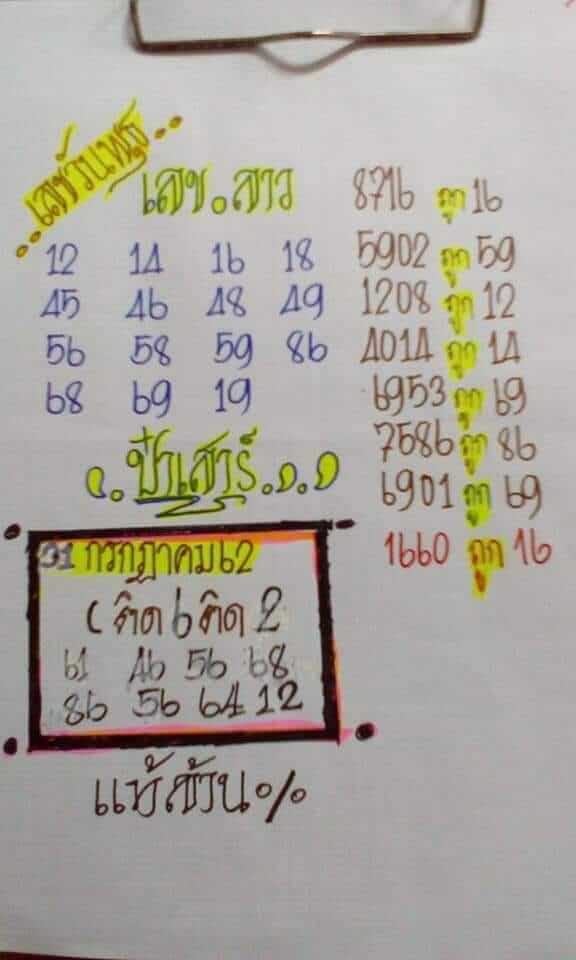 เลขวันพุธ
เลข.ลาว
12 14 16 18
45 46 48 49
56 58 59 86
68 69 19
8716 ถูก 16
5902 ถูก 59
1208 ถูก 12
4014 ถูก 14
6953 ถูก 69
7586 ถูก 86
6901 ถูก 69
1660 ถูก 16
ป๋าเสาร์
31 กรกฎาคม 62
(ติด 6 ติด 2
61 46 56 68
86 56 64 12
แท้ล้าน%